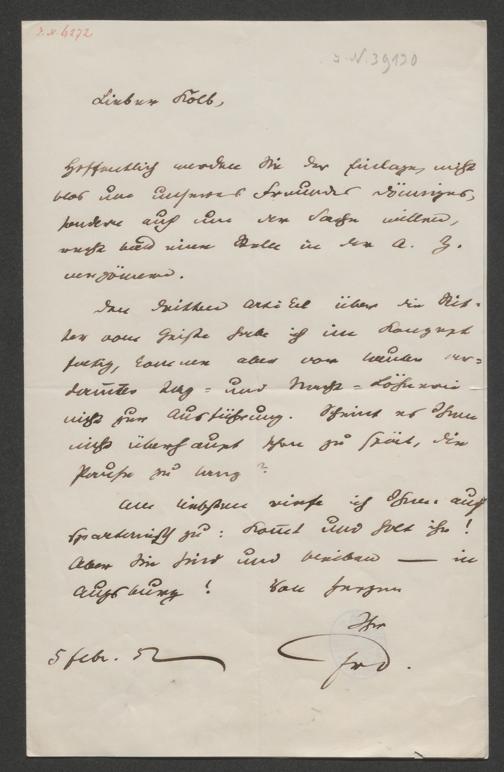 I.N. 6272
I.N. 39120
Lieber Kolb,
Hoffentlich werden Sie der Einlage, nicht
blos um unseres Freundes
sondern auch um der Sache willen,
recht bald eine Stelle in der A. Z.
Den dritten Artikel über die Rit-
ter vom Geiste habe ich im Konzept
fertig, komme aber vor lauter ver-
dammter Tag- und Nacht-
nicht zur Ausführung. Scheint es Ihnen
nicht überhaupt schon zu spät, die
Pause zu lang?
Am liebsten riefe ich Ihnen auf
spartanisch zu: Komt und holt ihn!
Aber Sie sind und bleiben — in
Augsburg! Von Herzen
Ihr
5 Febr. 52